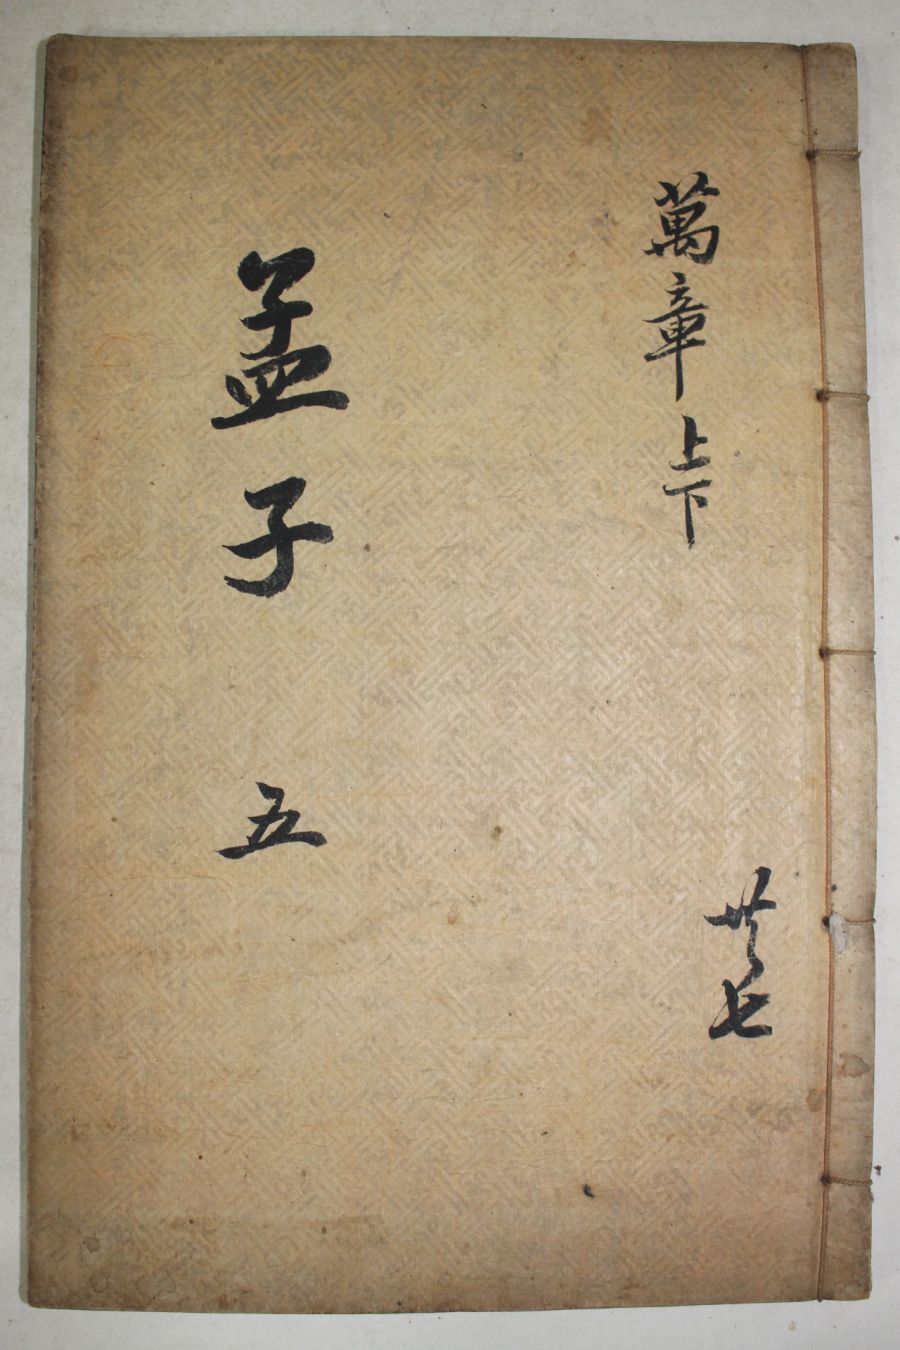 萬章上下
共七
孟子 五